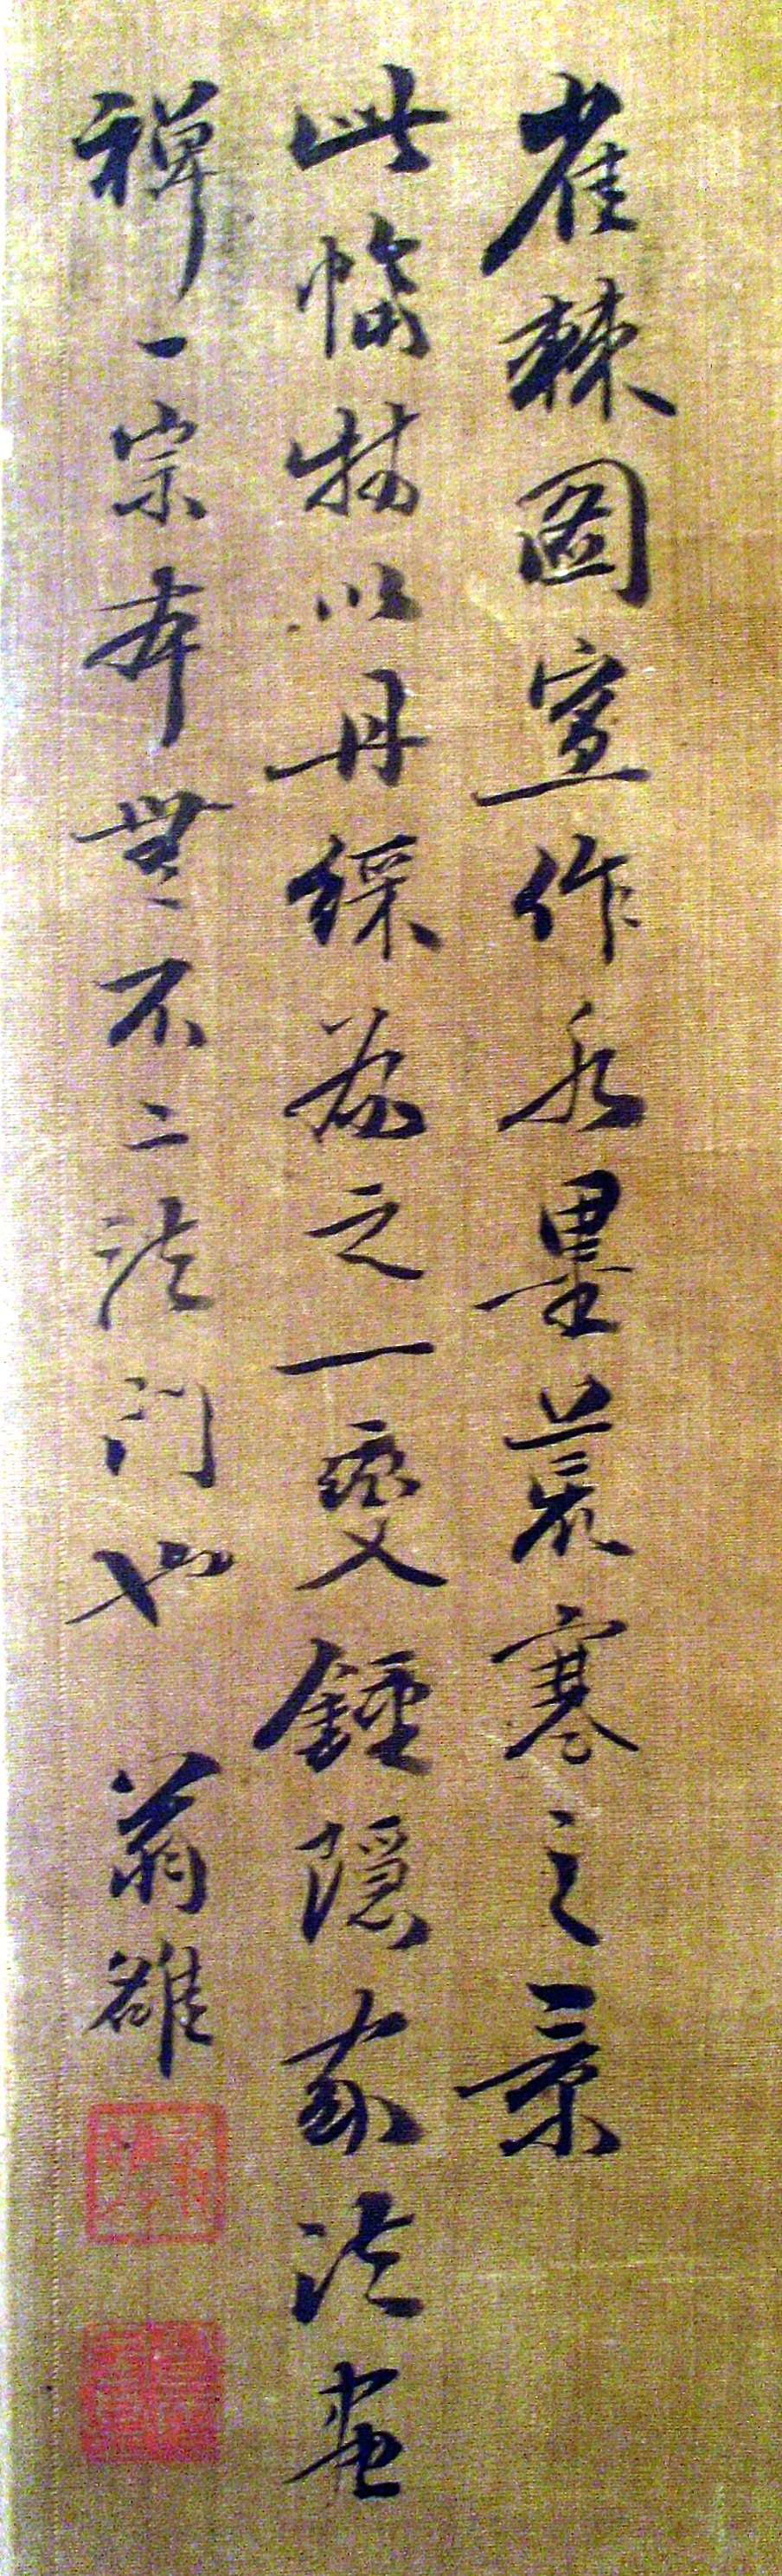 雀棘圖宜作水墨荒寒之景
此幅特以丹綵為之一變鍾隱家法畫
禪一宗本無不二法門也 翁雒